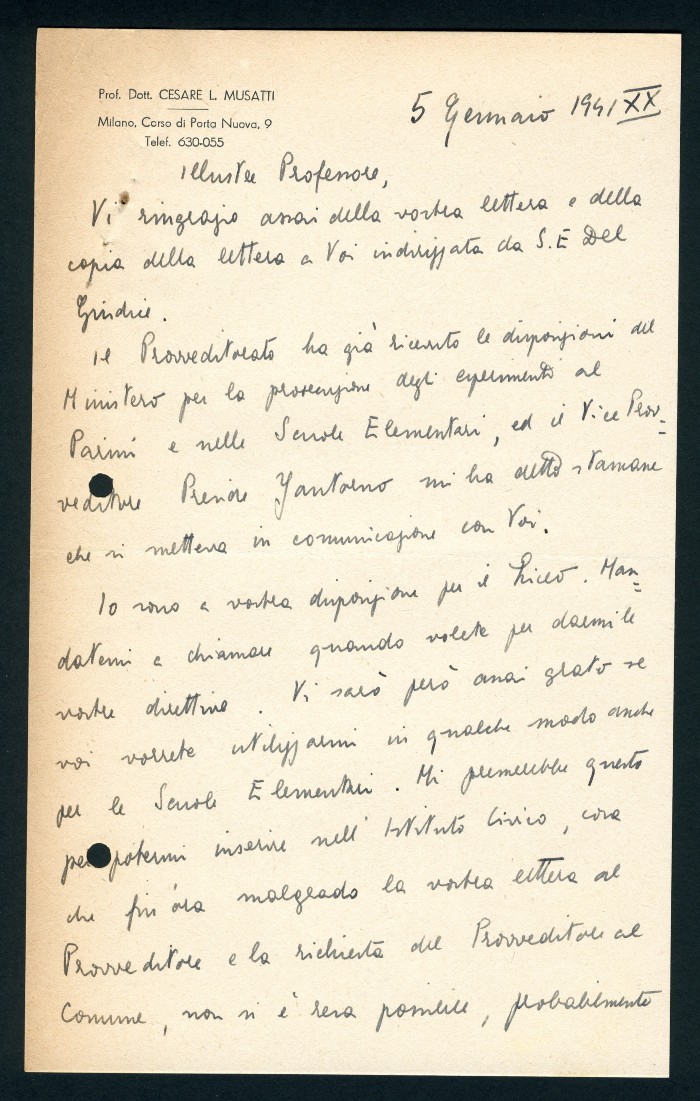 Prof. Dott. CESARE L. MUSATTI
Milano, Corso di Porta Nuova, 9
Telef. 630-055
5 Gennaio 1941 XX
Illustre Professore,
Vi ringrazio assai della vostra lettera e della
copia della lettera a Voi indirizzata da S.E Del
Giudice.
Il Provveditorato ha già ricevuto le disposizioni del
Ministero per la prosecuzione degli esperimenti al
Parini e nelle Scuole Elementari, ed il Vice Prov=
veditore mi ha detto stamane
che si metterà in comunicazione con Voi.
Io sono a vostra disposizione per il Liceo. Man=
datemi a chiamare quando volete per darmi le
vostre direttive. Vi sarò però assai grato se
voi vorrete utilizzarmi in qualche modo anche
per le Scuole Elementari. Mi premerebbe questo
per potermi inserire nell'Istituto Civico, cosa
che fin'ora malgrado la vostra lettera al
Provveditore e la richiesta del Provveditore al
Comune, non si è resa possibile, probabilmente